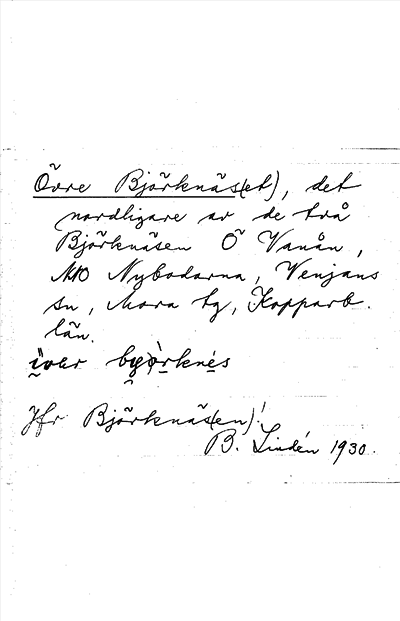 Övre Björknäs(et), det
nordligare av de två
Björknäsen Ö Vanån,
NO Nybodarna, Venjans
sn, Mora tg, Kopparb.
län.
Jfr Björknäs(en)!
B. Lindén 1930.